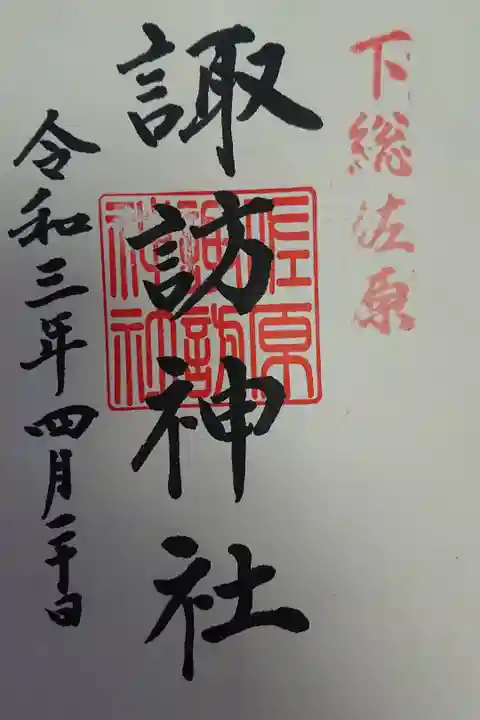 下総佐原
諏訪神社
佐原
諏訪
神社
令和三年四月二十日